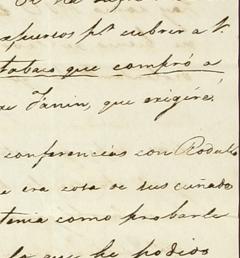 expuestos pª cubrir a V.
tabaco que compró a
Fanin, que exigiré.
conferencias con Rodulfo
e era cosa de sus cuñado
tenia como probarle
la que he podido